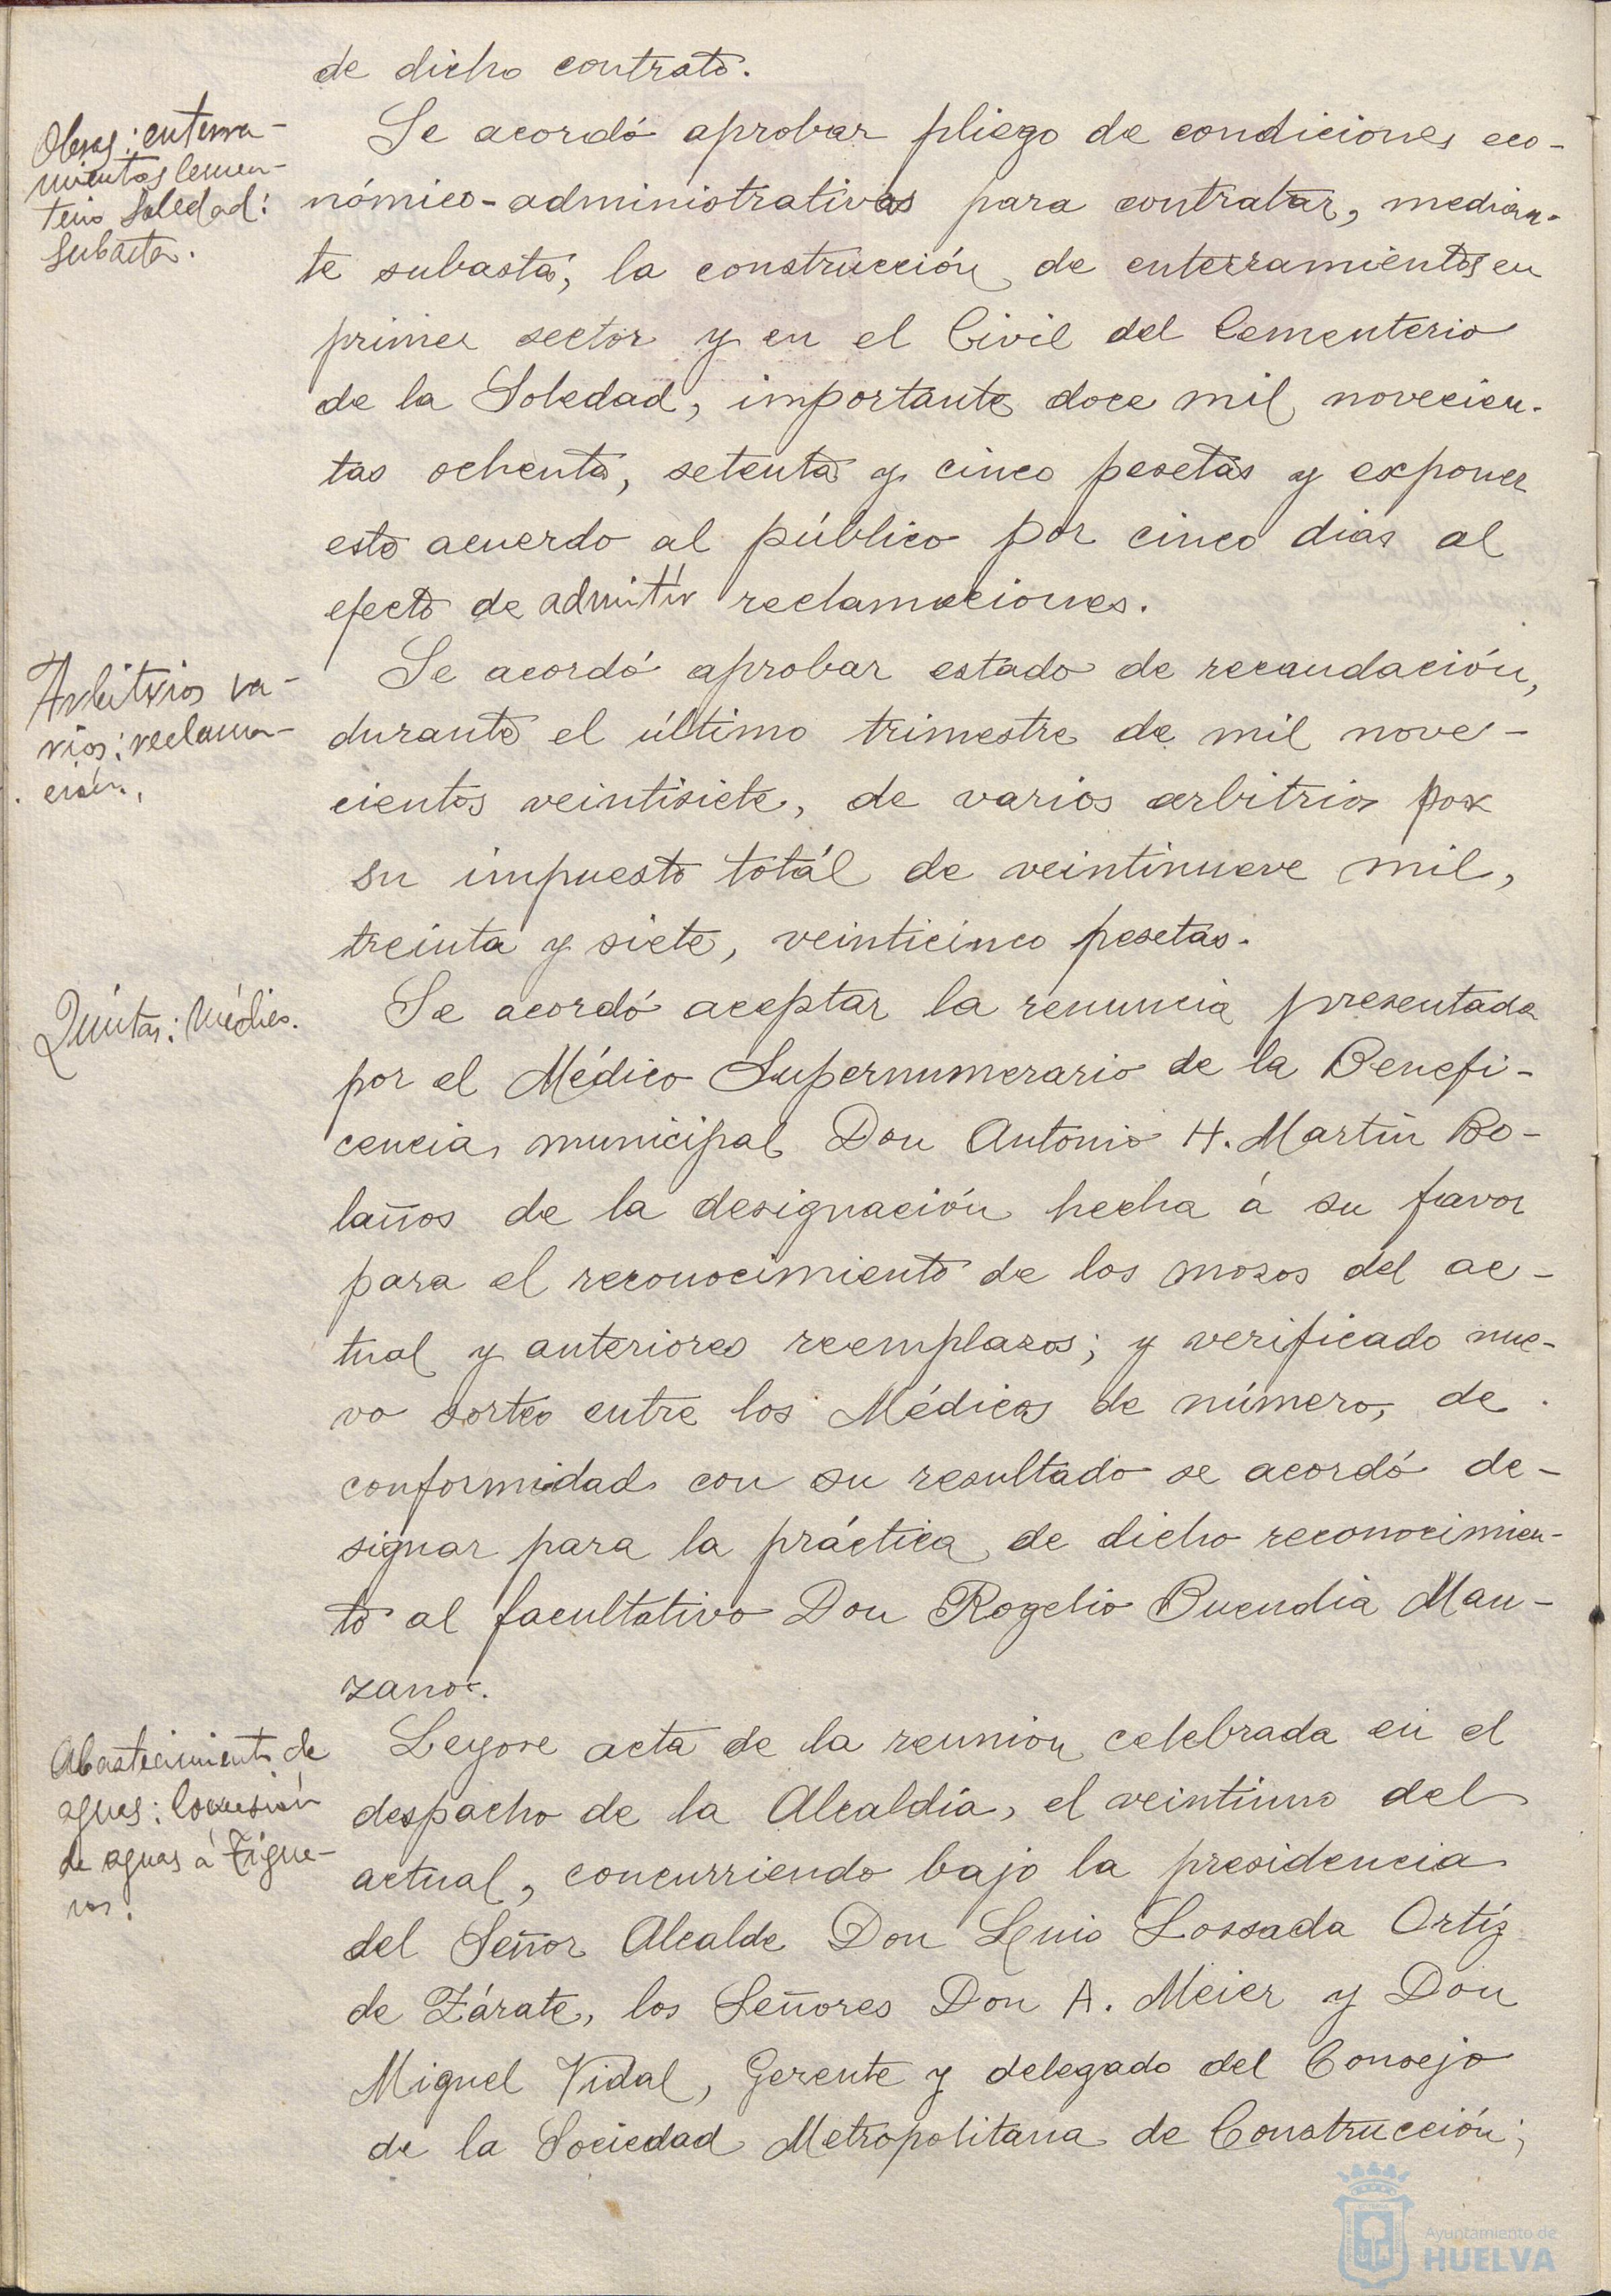 de dicho contrato.
Obras: enterra-
mientos Cemen-
terio Soledad:
Subasta.
Se acordó aprobar pliego de condiciones eco-
nómico-administrativas para contratar, median-
te subasta, la construcción de enterramientos en
primer sector y en el Civil del Cementerio
de la Soledad, importante doce mil novecien-
tas ochenta, setenta y cinco pesetas y exponer
este acuerdo al público por cinco dias al
efecto de admitir reclamaciones.
Arbitrios va-
rios: reclama-
ción.
Se acordó aprobar estado de recaudación,
durante el último trimestre de mil nove-
cientos veintisiete, de varios arbitrios por
su impuesto totál de veintinueve mil,
treinta y siete, veinticinco pesetas.
Quintas: Médico.
Se acordó aceptar la renuncia presentada
por el Médico Supernumerario de la Benefi-
cencia municipal Don Antonio H. Martín Bo-
laños de la designación hecha á su favor
para el reconocimiento de los mozos del ac-
tual y anteriores reemplazos; y verificado nue-
vo sorteo entre los Médicos de número, de
conformidad con su resultado se acordó de-
signar para la práctica de dicho reconocimien-
to al facultativo Don Rogelio Buendia Man-
zano.
Abastecimiento de
aguas: Concesión
de aguas á Zigue-
ros.
Leyose acta de la reunion celebrada en el
despacho de la Alcaldía, el veintiuno del
actual, concurriendo bajo la presidencia
del Señor Alcalde Don Luis Lossada Ortíz
de Zárate, los Señores Don A. Meier y Don
Miguel Vidal, Gerente y delegado del Consejo
de la Sociedad Metropolitana de Construcción;
Ayuntamiento de
HUELVA